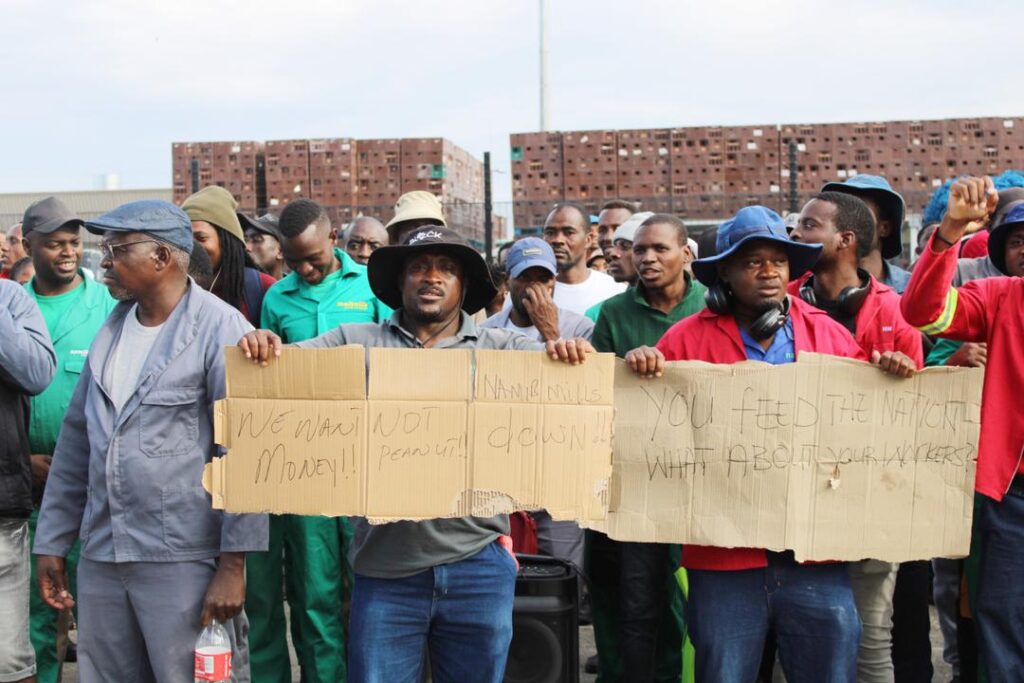 BLACK
NAMIB MILLS
WE WANT
MONEY!!
NOT
PEANUT!!
down!!
YOU FEED THE NATION
WHAT ABOUT YOUR WORKERS?